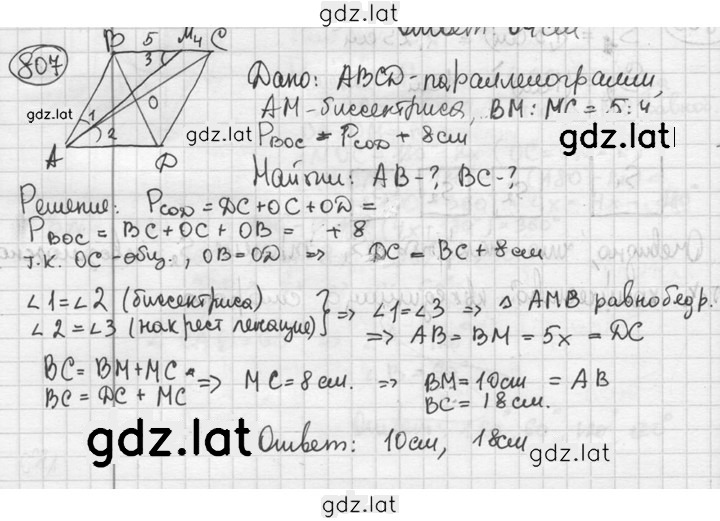 gdz.lat
807
B 5 M 4 C
3
gdz.lat
1
2
O
gdz.lat
A D
Дано: ABCD - параллелограмм,
AM - биссектриса, BM : MC = 5:4
P_BOC = P_COD + 8 см
gdz.lat
Найти: AB - ?, BC - ?
Решение: P_COD = DC + OC + OD =
P_BOC = BC + OC + OB = + 8
т.к. OC - общ., OB = OD => DC = BC + 8 см
∠1 = ∠2 (биссектриса)
∠2 = ∠3 (накрест лежащие) } => ∠1 = ∠3 => △ AMB равнобедр.
=> AB = BM = 5x = DC
BC = BM + MC
BC = DC + MC => MC = 8 см. => BM = 10 см = AB
BC = 18 см.
gdz.lat
Ответ: 10 см, 18 см
gdz.lat
gdz.lat